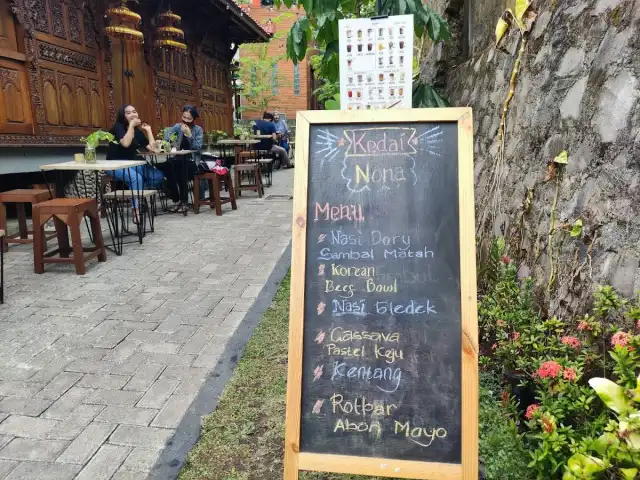 Kedai
Nona
Menu
Nasi Dory
Sambal Matah
Korean
Beef Bowl
Nasi Gledek
Cassava
Pastel Keju
Kentang
Rotbar
Abon Mayo